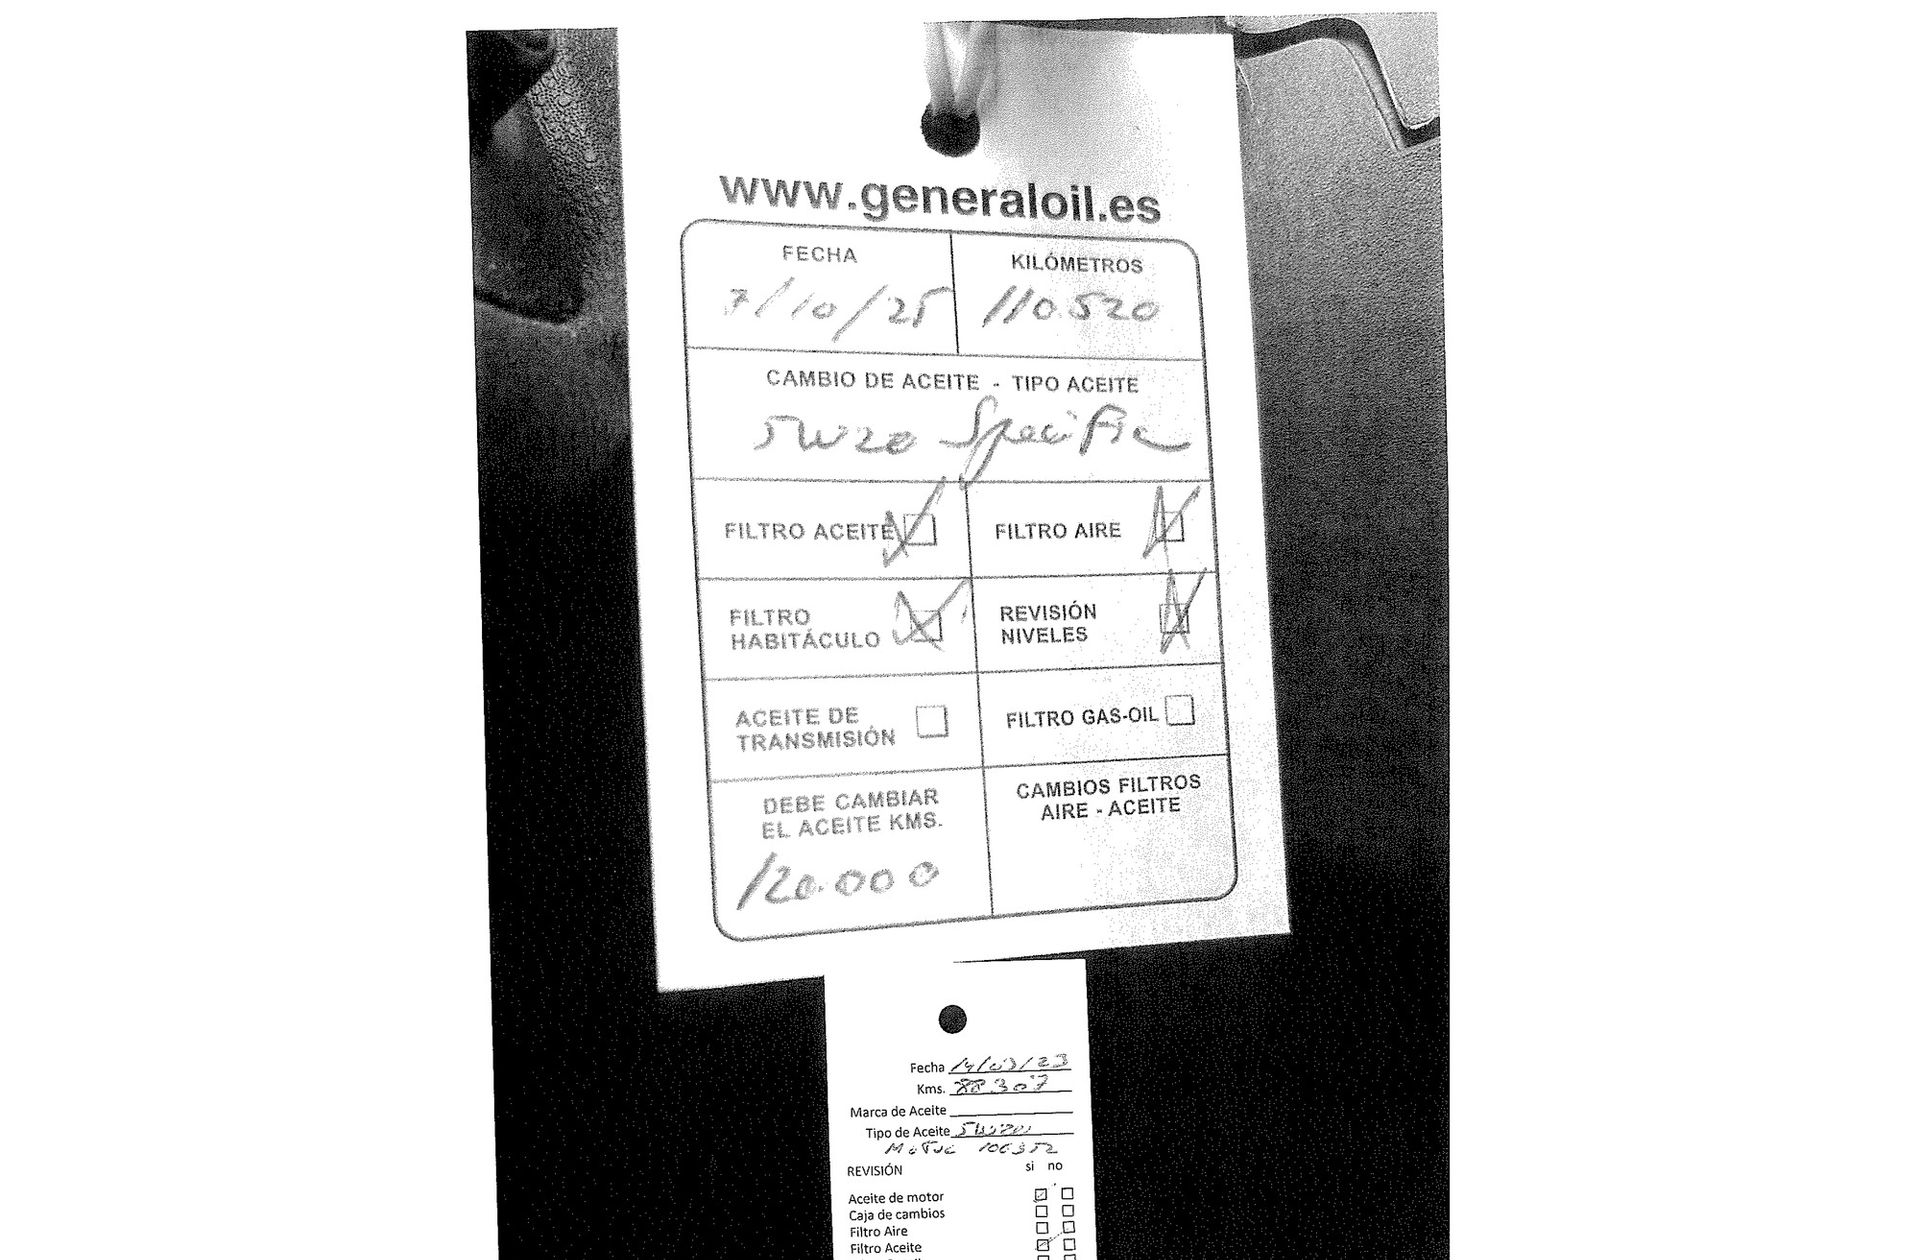 www.generaloil.es
FECHA
7/10/25
KILÓMETROS
110.520
CAMBIO DE ACEITE - TIPO ACEITE
5W20 Specific
FILTRO ACEITE
FILTRO AIRE
FILTRO
HABITÁCULO
REVISIÓN
NIVELES
ACEITE DE
TRANSMISIÓN
FILTRO GAS-OIL
DEBE CAMBIAR
EL ACEITE KMS.
120.000
CAMBIOS FILTROS
AIRE - ACEITE
Fecha 14/03/23
Kms. 88.307
Marca de Aceite
Tipo de Aceite 5W20
REVISIÓN si no
Aceite de motor
Caja de cambios
Filtro Aire
Filtro Aceite